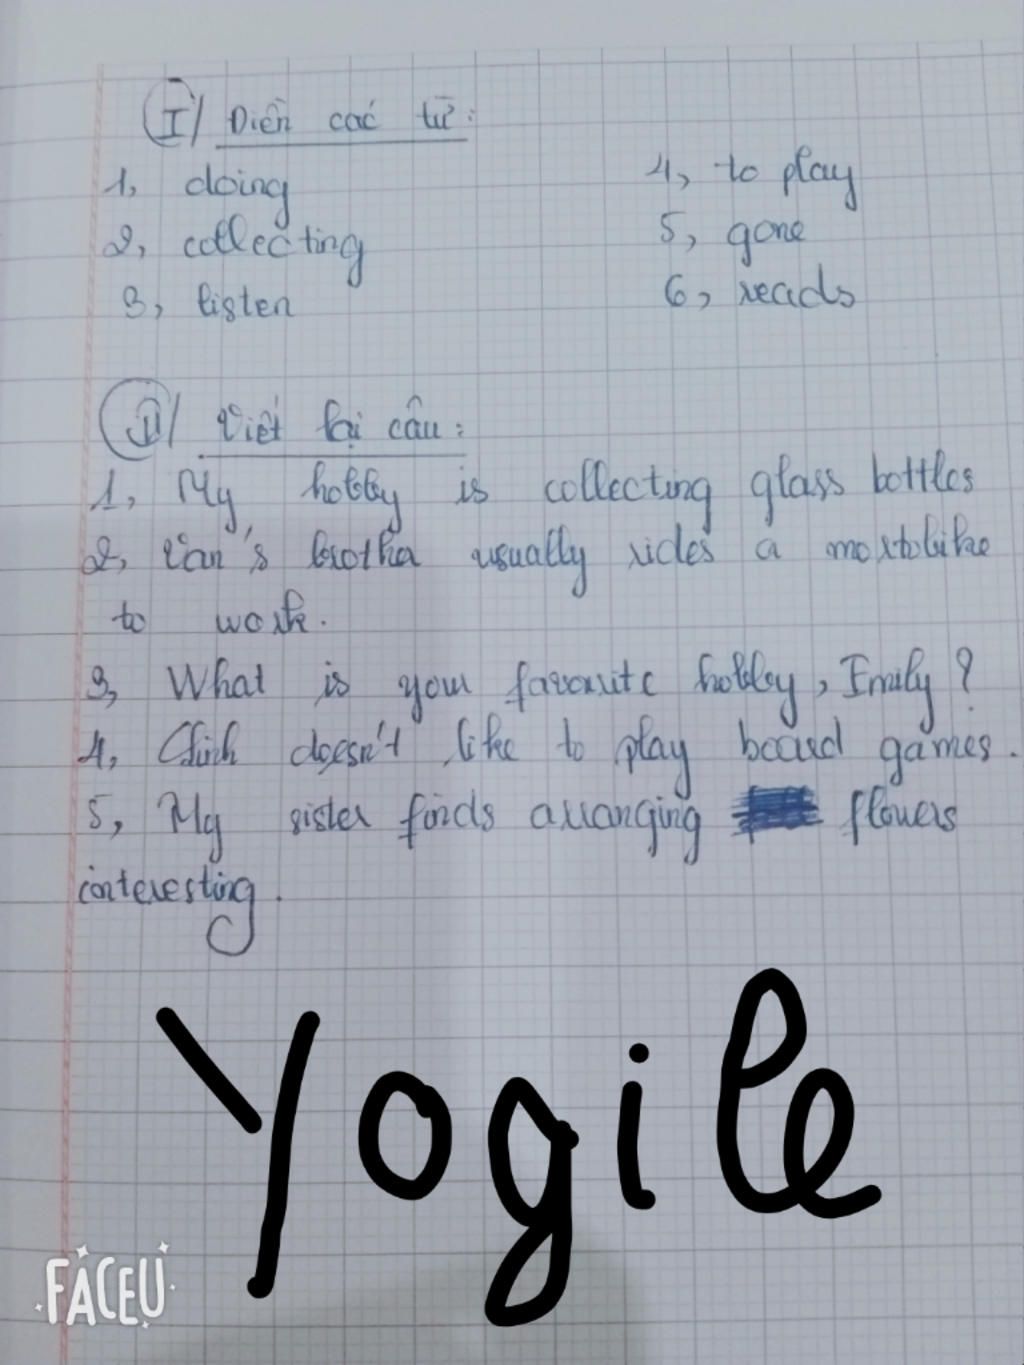 I/ Điền các từ:
1, doing
2, collecting
3, listen
4, to play
5, gone
6, reads
II/ Viết lại câu:
1, My hobby is collecting glass bottles
2, Van's brother usually rides a mortobike
to work.
3, What is your favourite hobby, Emily?
4, Chinh doesn't like to play board games.
5, My sister finds arranging flowers
interesting.
Yogile
FACEU